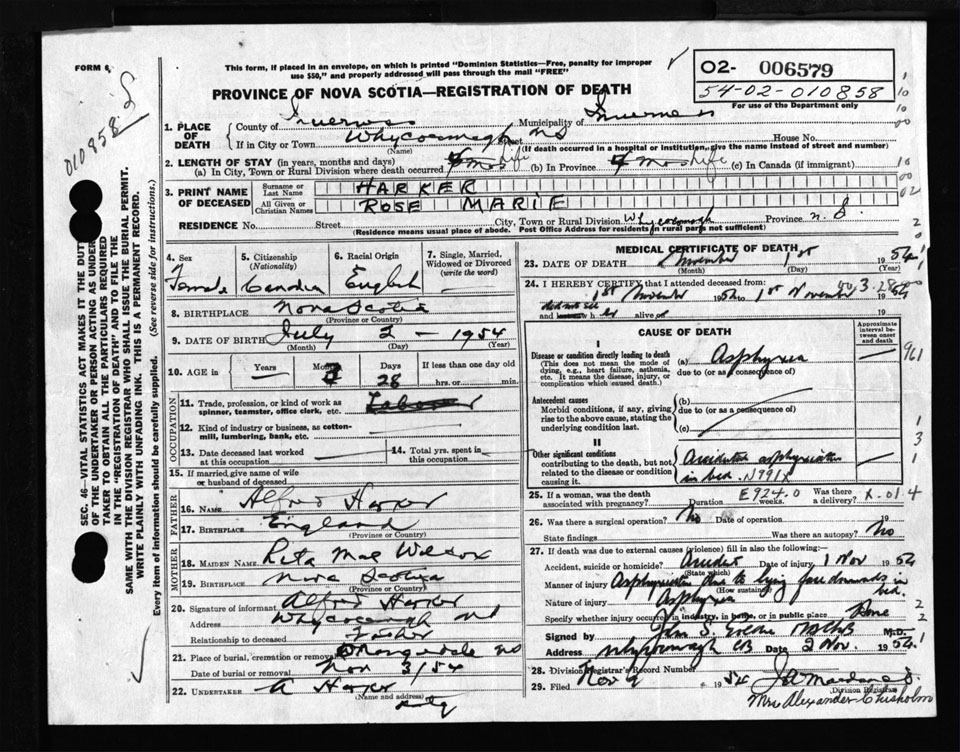 FORM 6,
This form, if placed in an envelope, on which is printed "Dominion Statistics—Free, penalty for improper
use $50," and properly addressed will pass through the mail "FREE"
PROVINCE OF NOVA SCOTIA—REGISTRATION OF DEATH
02- 006579
54-02-010858
For use of the Department only
010858
1. PLACE OF DEATH
County of Inverness Municipality of Inverness
If in City or Town Whycocomagh NS Street House No.
(Name) (If death occurred in a hospital or institution, give the name instead of street and number)
2. LENGTH OF STAY (in years, months and days)
(a) In City, Town or Rural Division where death occurred 4 mos life (b) In Province 4 Mos life (c) In Canada (if immigrant)
3. PRINT NAME OF DECEASED
Surname or Last Name HARKER
All Given or Christian Names ROSE MARIE
RESIDENCE No. Street City, Town or Rural Division Whycocomagh Province n. S.
(Residence means usual place of abode. Post Office Address for residents in rural parts not sufficient)
4. Sex Female
5. Citizenship (Nationality) Canadian
6. Racial Origin English
7. Single, Married, Widowed or Divorced (write the word)
8. BIRTHPLACE Nova Scotia
(Province or Country)
9. DATE OF BIRTH July 2 - 1954
(Month) (Day) (Year)
10. AGE in Years Months 3 Days 28 If less than one day old
hrs. or min.
OCCUPATION
11. Trade, profession, or kind of work as
spinner, teamster, office clerk, etc. Laborer
12. Kind of industry or business, as cotton-
mill, lumbering, bank, etc.
13. Date deceased last worked at this occupation
14. Total yrs. spent in this occupation
15. If married, give name of wife
or husband of deceased
FATHER
16. NAME Alfred Harker
17. BIRTHPLACE England
(Province or Country)
MOTHER
18. MAIDEN NAME Rita Mae Wilcox
19. BIRTHPLACE Nova Scotia
(Province or Country)
20. Signature of informant Alfred Harker
Address Whycocomagh NS
Relationship to deceased Father
21. Place of burial, cremation or removal NS
Date of burial or removal Nov 3/54
22. UNDERTAKER A Harker
(Name and address)
MEDICAL CERTIFICATE OF DEATH
23. DATE OF DEATH November 1st 1954
(Month) (Day) (Year)
24. I HEREBY CERTIFY that I attended deceased from:
1st November 1954 to 1st November 1954
did not see
and last saw h alive on
CAUSE OF DEATH
Approximate interval between onset and death
I
Disease or condition directly leading to death
(This does not mean the mode of dying, e.g., heart failure, asthenia, etc. It means the disease, injury, or complication which caused death.)
(a) Asphyxia
due to (or as consequence of)
Antecedent causes
Morbid conditions, if any, giving rise to the above cause, stating the underlying condition last.
(b)
due to (or as a consequence of)
(c)
II
Other significant conditions
contributing to the death, but not related to the disease or condition causing it.
Accidental asphyxiation
in bed. N991X
25. If a woman, was the death associated with pregnancy? Duration E924.0 weeks Was there a delivery? X-01 4
26. Was there a surgical operation? No Date of operation 19
State findings Was there an autopsy? No
27. If death was due to external causes (violence) fill in also the following:—
Accident, suicide or homicide? Accident Date of injury, 1 Nov 1954
(State which)
Manner of injury Asphyxiation due to lying face downwards in bed.
(How sustained)
Nature of injury Asphyxia
Specify whether injury occurred in industry, in home, or in public place Home
Signed by John S. M.D.
Address Whycocomagh CB Date 2 Nov. 1954
28. Division Registrar's Record Number
29. Filed Nov 9 1954
Division Registrar
Mrs Alexander Chisholm
SEC. 46—VITAL STATISTICS ACT MAKES IT THE DUTY
OF THE UNDERTAKER OR PERSON ACTING AS UNDER-
TAKER TO OBTAIN ALL THE PARTICULARS REQUIRED
IN THE "REGISTRATION OF DEATH" AND TO FILE THE
SAME WITH THE DIVISION REGISTRAR WHO SHALL ISSUE THE BURIAL PERMIT.
WRITE PLAINLY WITH UNFADING INK. THIS IS A PERMANENT RECORD.
Every item of information should be carefully supplied. (See reverse side for instructions.)